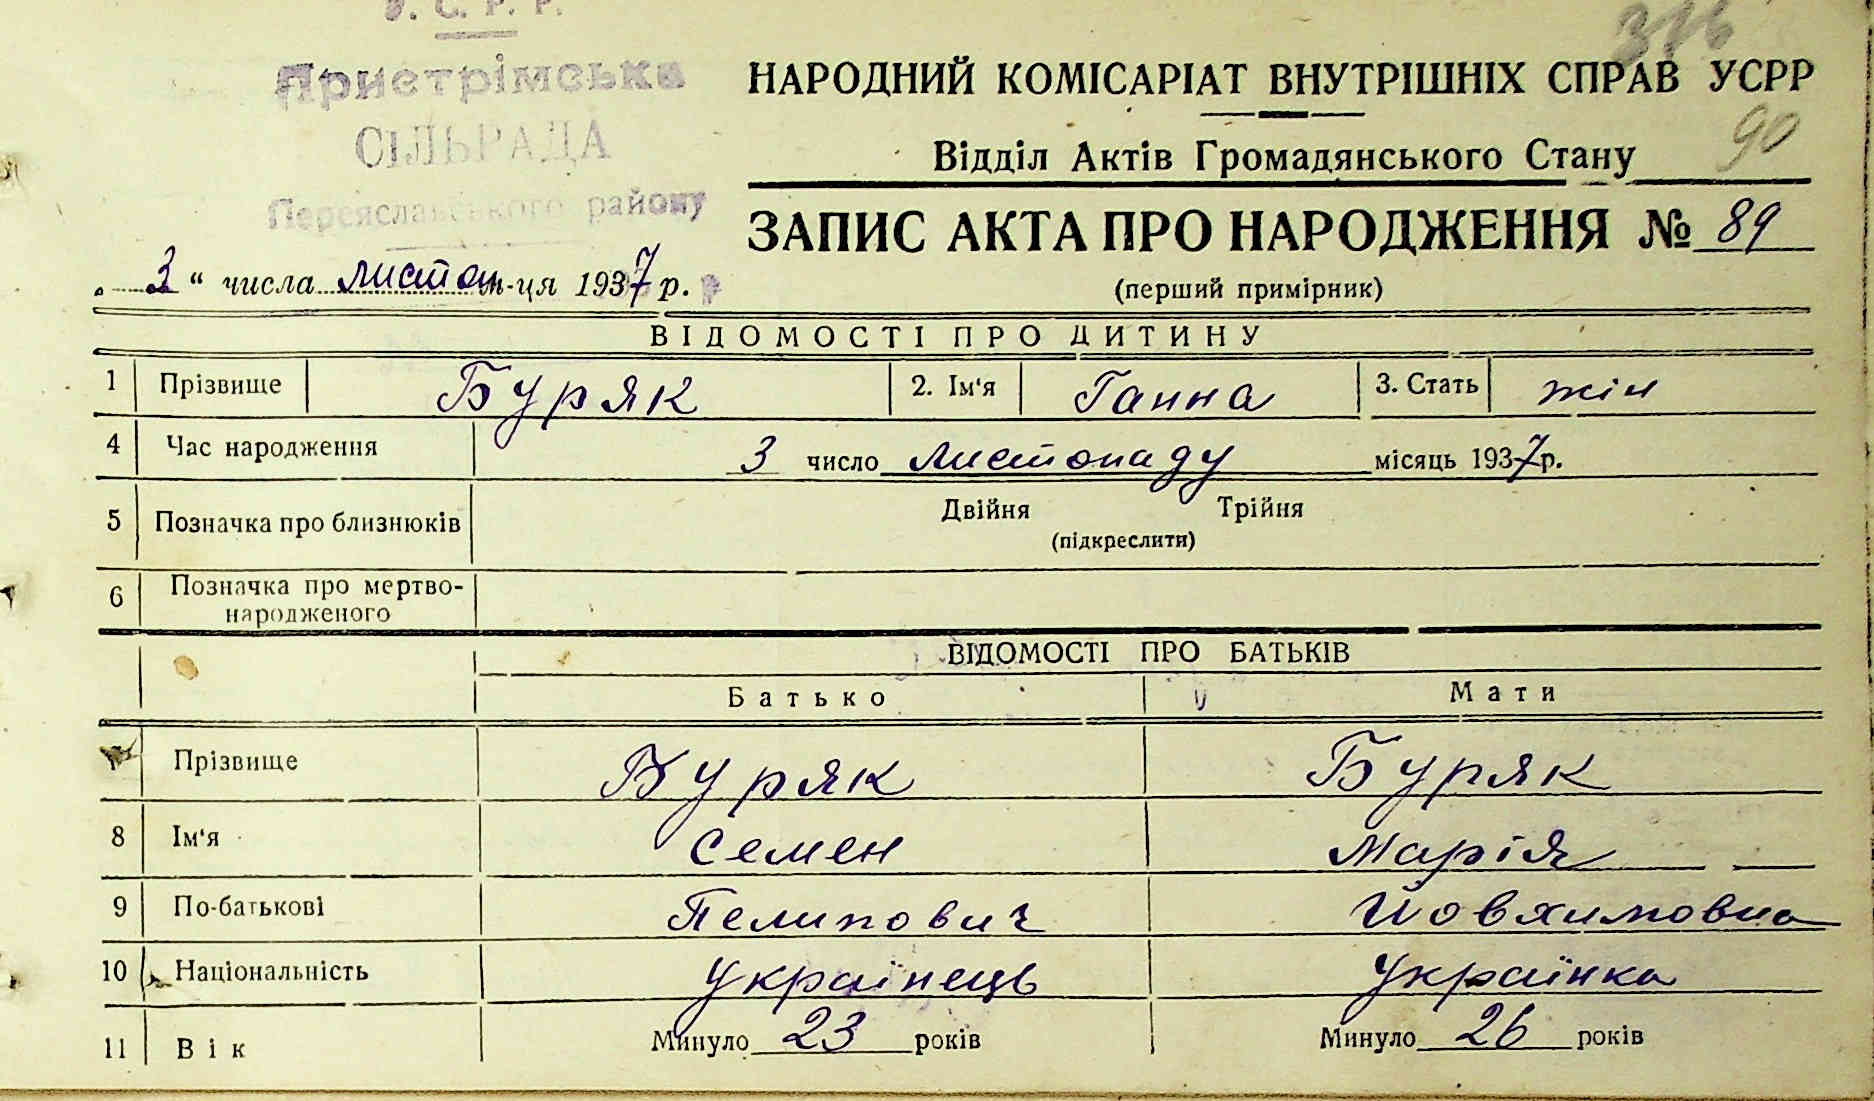 У. С. Р. Р.
Пристрімська
СІЛЬРАДА
Переяславського району
316
НАРОДНИЙ КОМІСАРІАТ ВНУТРІШНІХ СПРАВ УСРР
90
Відділ Актів Громадянського Стану
ЗАПИС АКТА ПРО НАРОДЖЕННЯ № 89
(перший примірник)
„ 3 “ числа листоп м-ця 1937 р.
ВІДОМОСТІ ПРО ДИТИНУ
1 Прізвище Буряк 2. Ім'я Ганна 3. Стать жін
4 Час народження 3 число листопаду місяць 1937р.
5 Позначка про близнюків Двійня Трійня
(підкреслити)
6 Позначка про мертво-
народженого
ВІДОМОСТІ ПРО БАТЬКІВ
Батько Мати
Прізвище Буряк Буряк
8 Ім'я Семен Марія
9 По-батькові Пелипович Йовхимовна
10 Національність Українець Українка
11 Вік Минуло 23 років Минуло 26 років